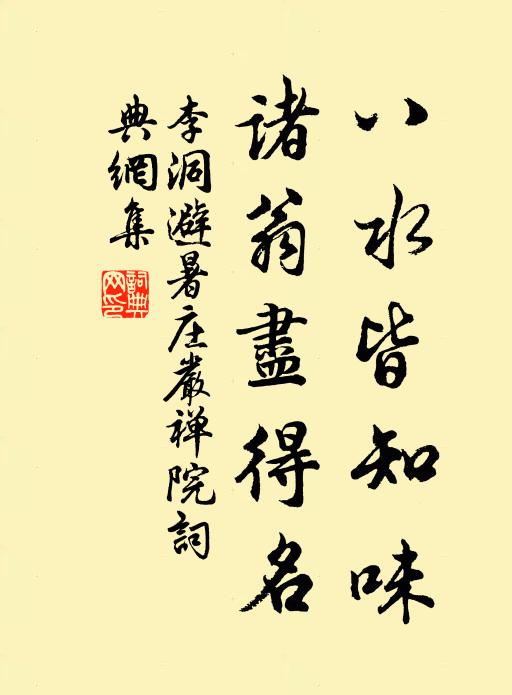 八水皆知味
諸翁盡得名
李洞避暑庄嚴禅院詞
典網集
詞典網印